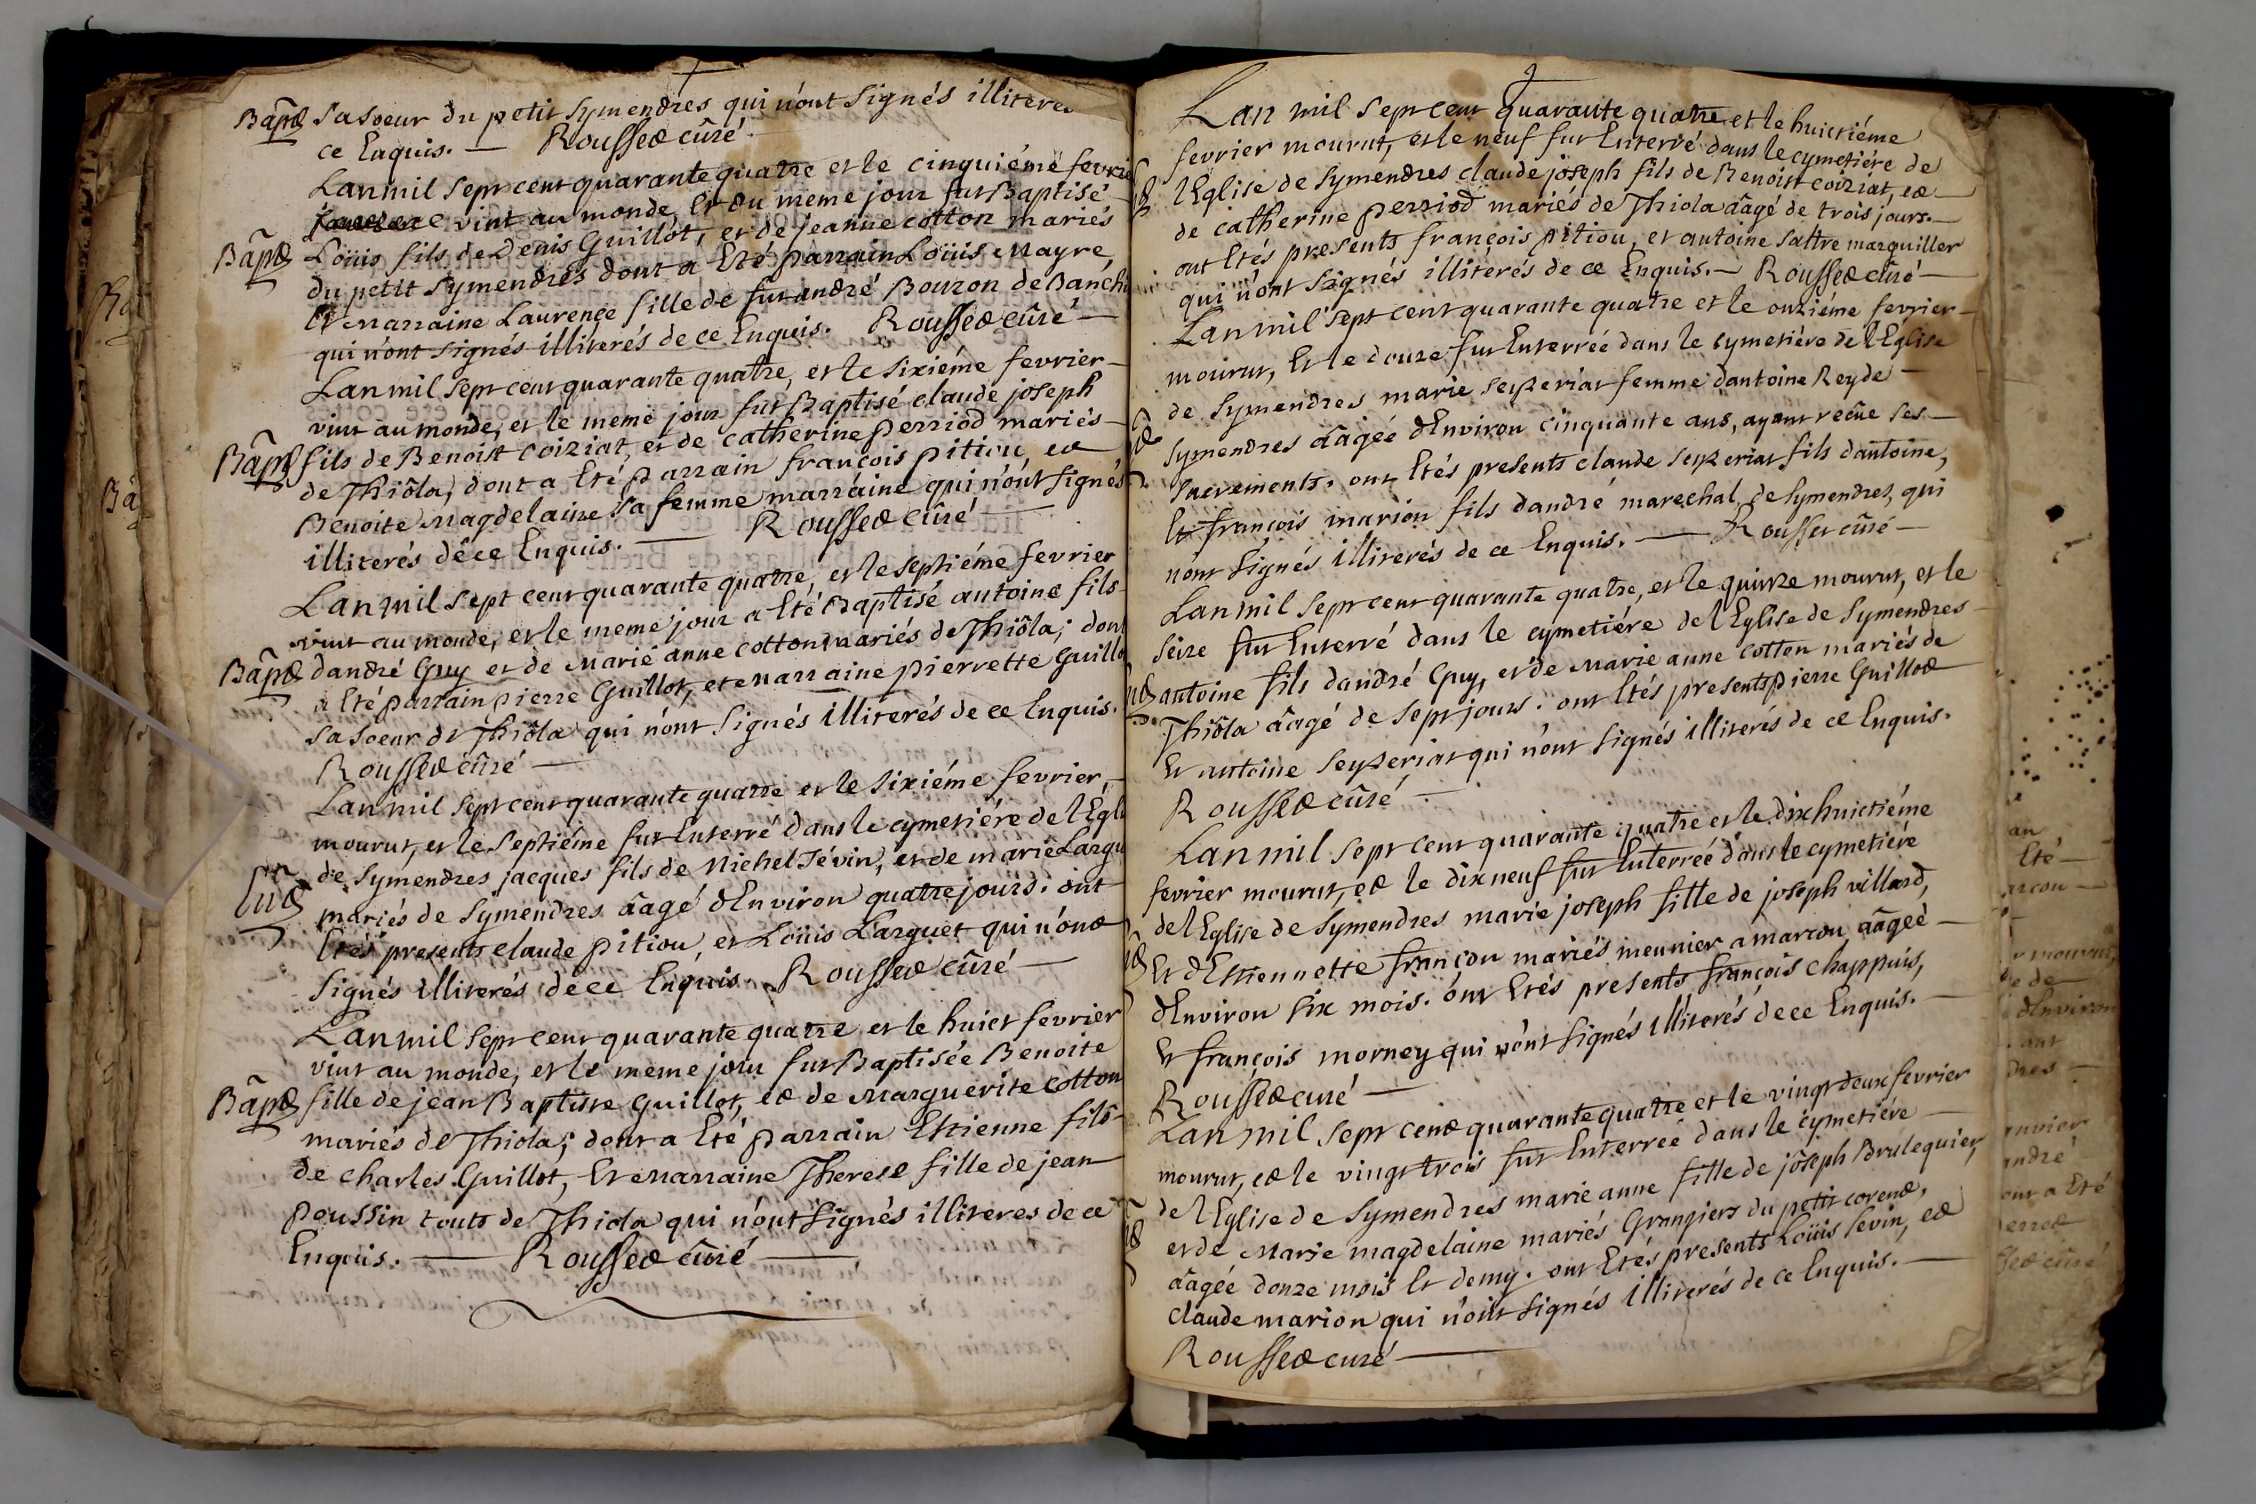 Bap̃t sa soeur du petit symendres qui n'ont signés illiteres
ce Enquis. — Rousset cûré
Lan mil sept cent quarante quatre et le cinquiéme fevrie
vint au monde, et du meme jour fut Baptisé
Bap̃t Loüis fils de Denis Guillot, et de jeanne cotton mariés
du petit symendres dont a Eté parrain Loüis Mayre,
Et Marraine Laurence fille de fut andré Bouzon de Banch
qui n'ont signés illiterés de ce Enquis. Rousset cûré —
Lan mil sept cent quarante quatre, et le sixiéme fevrier —
vint au monde, et le meme jour fut Baptisé claude joseph
Bap̃t fils de Benoist Coiziat, et de catherine perriod mariés —
de Thiôla, dont a Eté parrain françois pitiou et
Benoite Magdelaine sa femme marraine qui n'ont signés
illiterés de ce Enquis. — Rousset cûré —
Lan mil sept cent quarante quatre, et le septiéme fevrier
vint au monde, et le meme jour a Eté Baptisé antoine fils
Bap̃t dandré Guy et de Marie anne cotton mariés de Thiôla; dont
a Eté parrain pierre Guillot, et marraine pierrette Guillo
sa soeur de Thiôla qui n'ont signés illiterés de ce Enquis.
Rousset cûré —
Lan mil sept cent quarante quatre et le sixiéme fevrier —
mourut, et le septiéme fut Enterré dans le cymetiére de lÉgl
de symendres jacques fils de Michel Sévin, et de marie Largu
mariés de symendres âagé dEnviron quatre jours. ont
Etés presents claude pitiou, et Loüis Larguet qui n'ont
signés illiterés de ce Enquis. Rousset cûré —
Lan mil sept cent quarante quatre et le huict fevrier
vint au monde, et le meme jour fut Baptisée Benoite
Bap̃t fille de jean Baptiste Guillot, et de Marguerite cotton
mariés de Thiola; dont a Eté parrain Estienne fils
de charles Guillot, Et Marraine Therese fille de jean
poussin touts de Thiola qui n'ont signés illiterés de ce
Enquis. — Rousset cûré —
Lan mil sept cent quarante quatre et le huictiéme
fevrier mourut, et le neuf fut Enterré dans le cymetiére de
lEglise de symendres claude joseph fils de Benoist coiziat, et —
de catherine perriod mariés de Thiola âagé de trois jours. —
ont Etés presents françois pitiou, et antoine sattre marguiller
qui n'ont signés illitérés de ce Enquis. — Rousset cûré —
Lan mil sept cent quarante quatre et le onziéme fevrier —
mourut, Et le douze fut Enterréé dans le cymetiére de lÉglise
de symendres marie seyzeriat femme dantoine Rey de —
symendres âagéé dEnviron cinquante ans, ayant recüe ses —
sacrements. ont Etés presents claude seyzeriat fils dantoine,
Et françois marion fils dandré marechal de symendres, qui
nont signés illiterés de ce Enquis. — Rousset cûré —
Lan mil sept cent quarante quatre, et le quinze mourut, et le
seize fut Enterré dans le cymetiére de lEglise de symendres —
antoine fils dandré Guy, et de Marie anne cotton mariés de
Thiôla âagé de sept jours. ont Etés presents pierre Guillot
Et antoine seyzeriat qui n'ont signés illiterés de ce Enquis.
Rousset cûré —
Lan mil sept cent quarante quatre et le dix huictiéme
fevrier mourut, et le dix neuf fut Enterréé dans le cymetiére
de lEglise de symendres marie joseph fille de joseph villard,
Et dEstiennette françon mariés meunier a marcou âagéé —
dEnviron six mois. ont Etés presents françois chappuis,
Et françois morney qui n'ont signés illiterés de ce Enquis. —
Rousset curé —
Lan mil sept cent quarante quatre et le vingt deux fevrier
mourut, et le vingt trois fut Enterréé dans le cymetiére —
de lEglise de symendres marie anne fille de jôseph Brulequier,
et de Marie magdelaine mariés Grangiers du petit corent,
âagée douze mois Et demy. ont Etés presents Loüis sevin, et
claude marion qui n'ont signés illiterés de ce Enquis. —
Rousset curé —